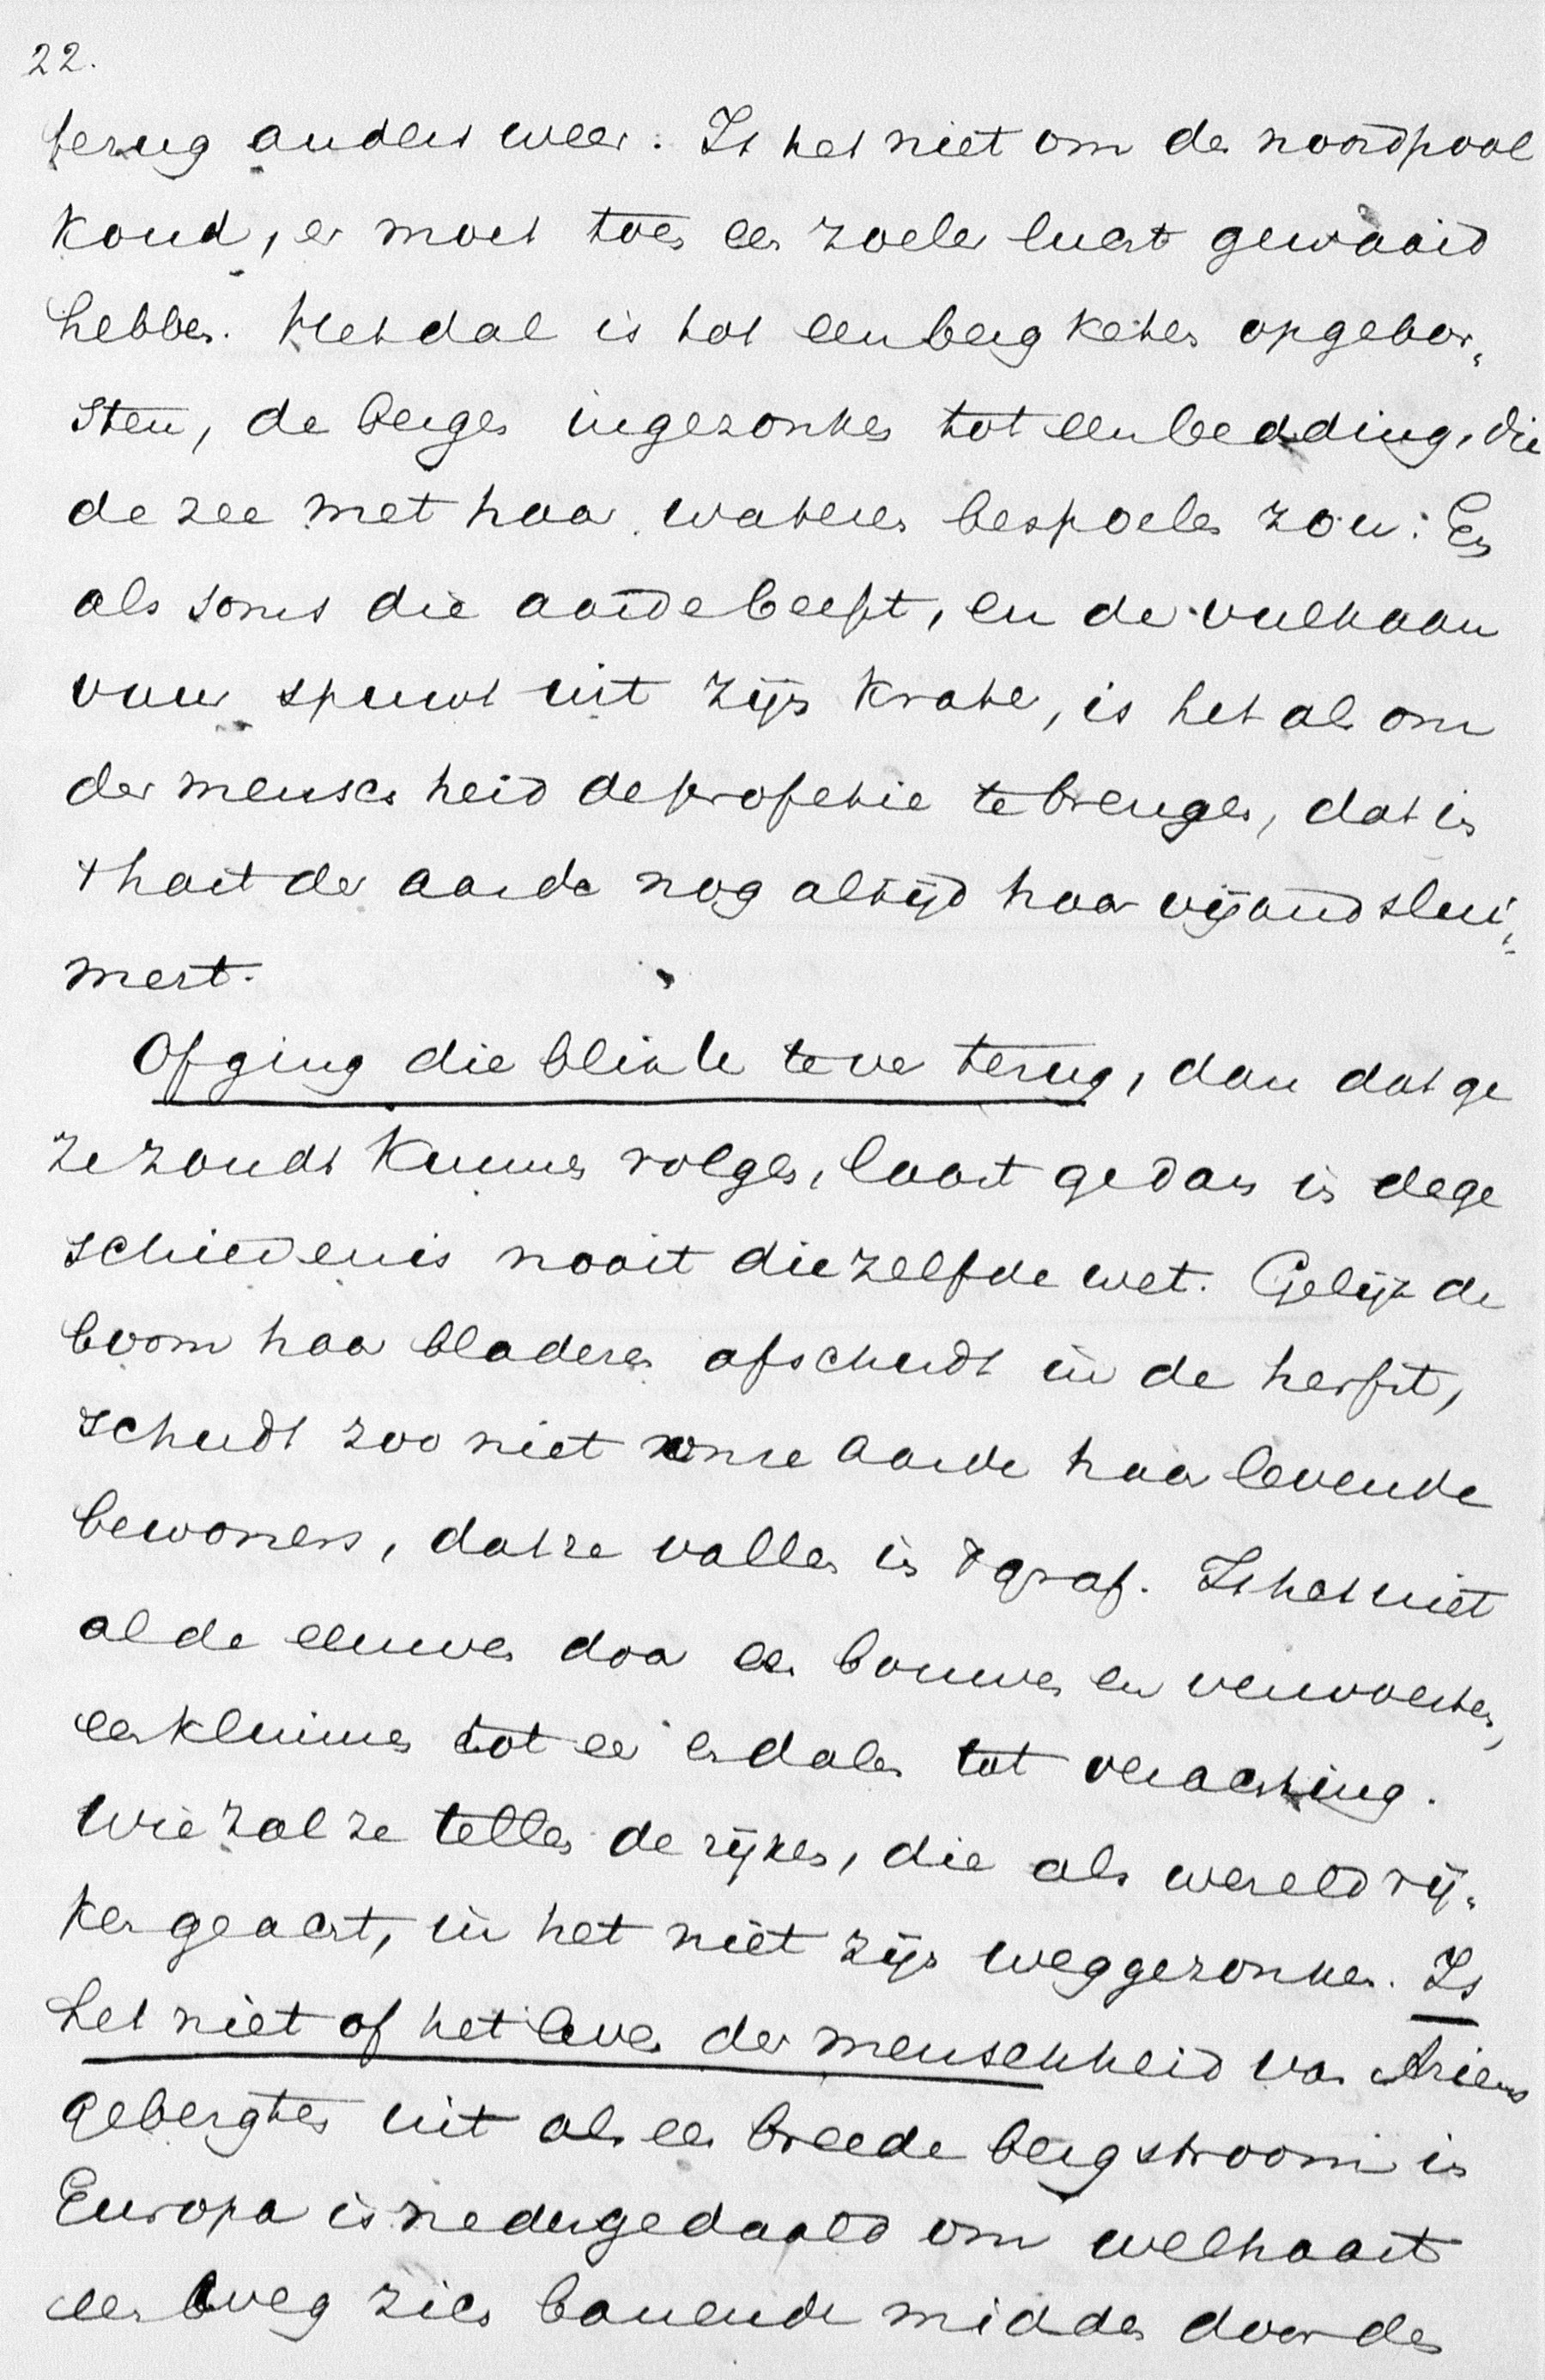 22.
terug anders weer. Is het niet om de noordpool
koud, er moet toen een zoele lucht gewaaid
hebben. Het dal is tot een berg keten opgebor„
sten, de bergen ingezonken tot een bedding, die
de zee met haar wateren bespoelen zou: En
als soms die aarde beeft, en de vulkaan
vuur spuwt uit zijn krater, is het als om
der menschheid de profetie te brengen, dat in
t hart der aarde nog altijd haar vijand slui„
mert.
Of ging die blik te ver terug, dan dat ge
ze zoudt kunnen volgen, laart ge dan in de ge
schiedenis nooit diezelfde wet. Gelijk de
boom haar bladeren afschudt in de herfst,
schudt zoo niet onze aarde haar levende
bewoners, dat ze vallen in t graf. Is het niet
al de eeuwen door een bouwen en verwoesten,
een klimmen tot eer en dalen tot verachting.
Wie zal ze tellen de rijken, die als wereldrij„
ken geacht, in het niet zijn weggezonken. Is
het niet of het leven der menschheid van Asiens
gebergten uit als een breede bergstroom in
Europa is nedergedaald om welhaast
een weg zich banende midden door den